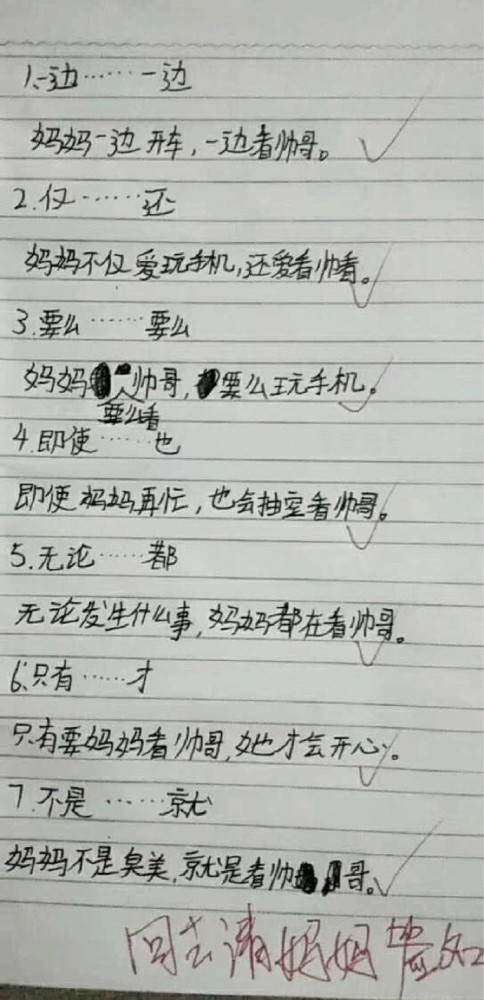 1.一边……一边
妈妈一边开车,一边看帅哥。
2.仅……还
妈妈不仅爱玩手机,还爱看帅看。
3.要么……要么
妈妈帅哥,要么玩手机。
要么看
4.即使……也
即使妈妈再忙,也会抽空看帅哥。
5.无论……都
无论发生什么事,妈妈都在看帅哥。
6.只有……才
只有要妈妈看帅哥,她才会开心。
7.不是……就
妈妈不是臭美,就是看帅哥。
回去请妈妈签